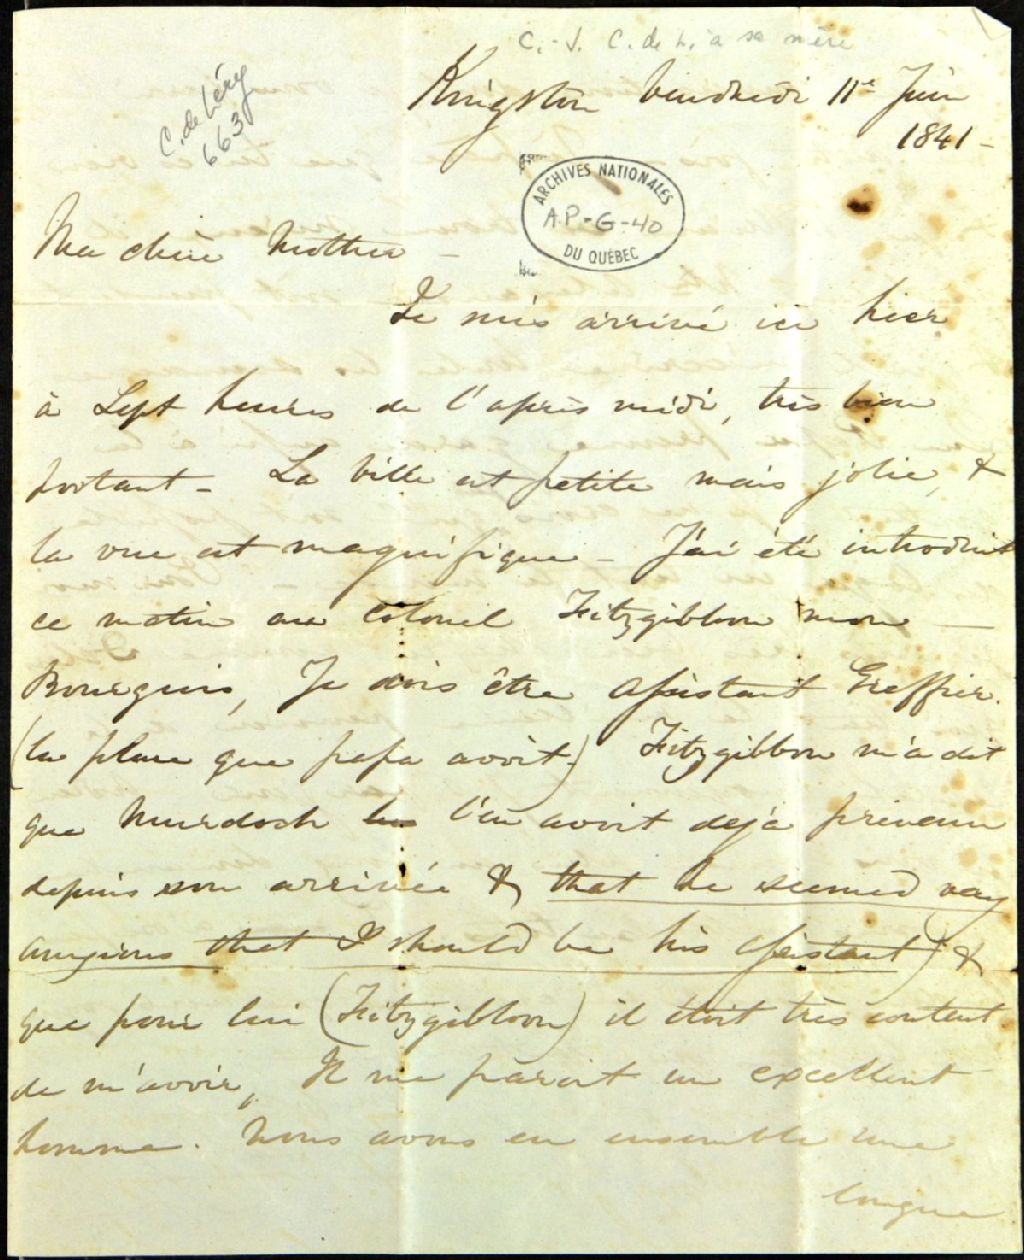 C.-J. C. de L. à sa mère
C. de Léry
663
Kingston Vendredi 11e Juin
1841 -
ARCHIVES NATIONALES
AP-G-40
DU QUÉBEC
Ma chère Mother -
Je suis arrivé ici hier
à Sept heures de l'après midi, très bien
portant - La Ville est petite mais jolie, &
la vue est magnifique - J'ai été introduit
ce matin au Colonel Fitzgibbon mon
Bourgeois, Je dois être Assistant Greffier.
(la place que papa avoit.) Fitzgibbon m'a dit
que Murdoch l'en avoit deja prevenu
depuis son arrivée & that he seemed very
anxious that I should be his assistant) &
que pour lui (Fitzgibbon) il étoit très content
de m'avoir, Il me paroit un excellent
homme. Nous avons eu ensemble une
longue